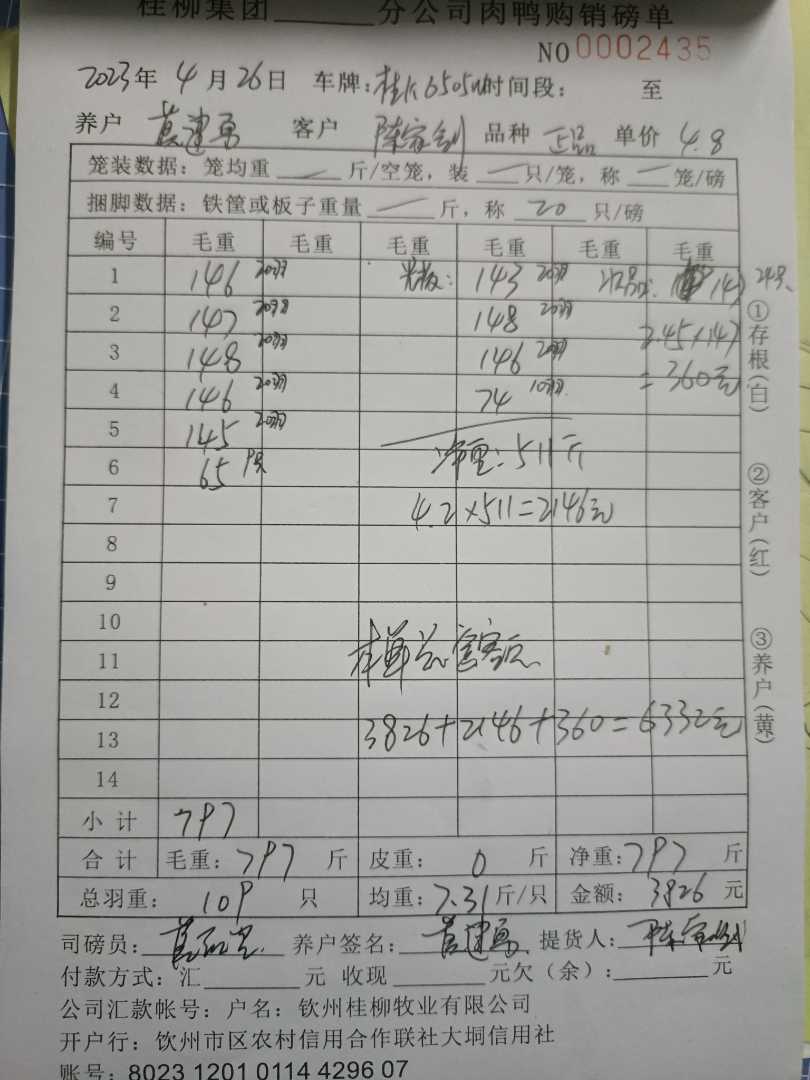 桂柳集团 分公司肉鸭购销磅单
NO 0002435
2023年 4月 26日 车牌: 时间段: 至
养户 黄建勇 客户 品种 正品 单价 4.8
笼装数据: 笼均重 — 斤/空笼, 装 — 只/笼, 称 — 笼/磅
捆脚数据: 铁筐或板子重量 — 斤, 称 20 只/磅
编号 毛重 毛重 毛重 毛重 毛重 毛重
1 146 20羽 143 20羽 147
2 147 20羽 148 20羽 2.45×147
3 148 20羽 146 20羽 =360元
4 146 20羽 74 10羽
5 145 20羽
6 65 9只 净重: 511斤
7 4.2×511=2146元
8
9
10
11
12
13 3826+2146+360=6332元
14
小计 797
合计 毛重: 797 斤 皮重: 0 斤 净重: 797 斤
总羽重: 109 只 均重: 7.31 斤/只 金额: 3826 元
司磅员: 养户签名: 黄建勇 提货人:
付款方式: 汇 元 收现 元欠(余): 元
公司汇款帐号: 户名: 钦州桂柳牧业有限公司
开户行: 钦州市区农村信用合作联社大垌信用社
账号: 8023 1201 0114 4296 07
①存根(白)
②客户(红)
③养户(黄)